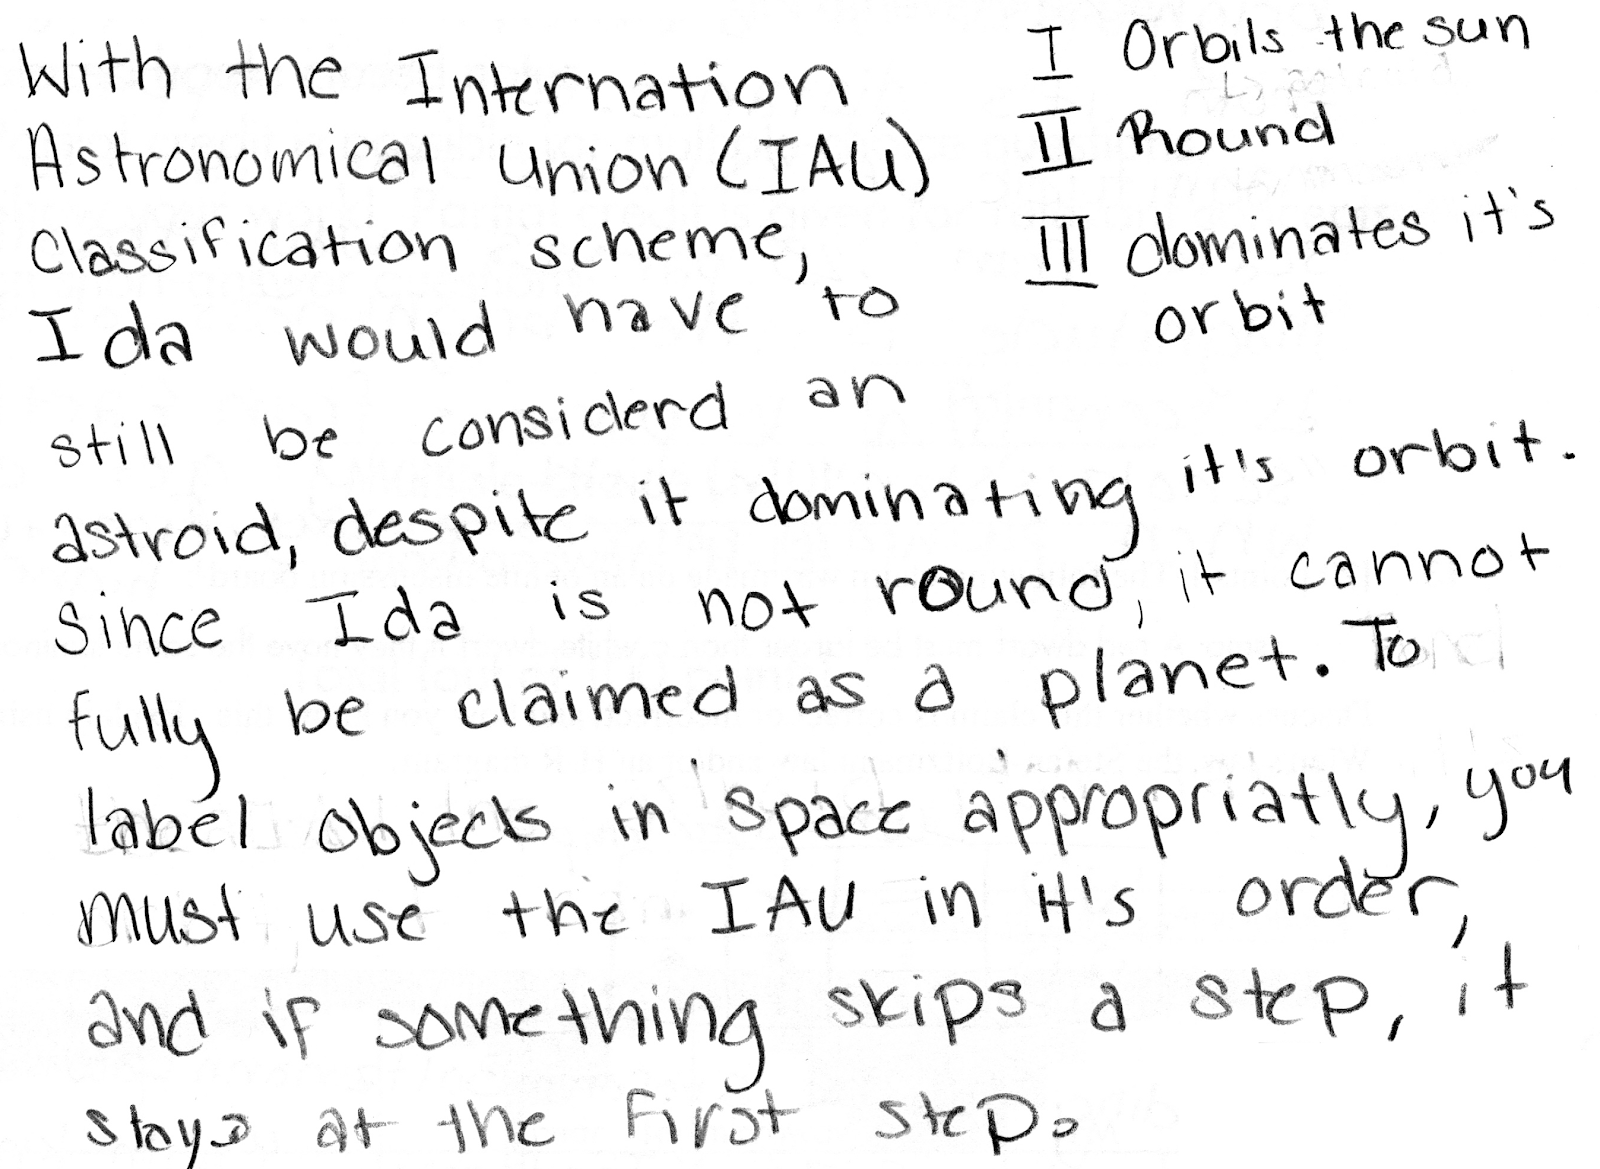 With the Internation
Astronomical Union (IAU)
Classification scheme,
Ida would have to
still be considerd an
astroid, despite it dominating it's orbit.
Since Ida is not round, it cannot
fully be claimed as a planet. To
label objects in space appropriatly, you
must use the IAU in it's order,
and if something skips a step, it
stays at the first step.
I Orbits the sun
II Round
III dominates it's
orbit